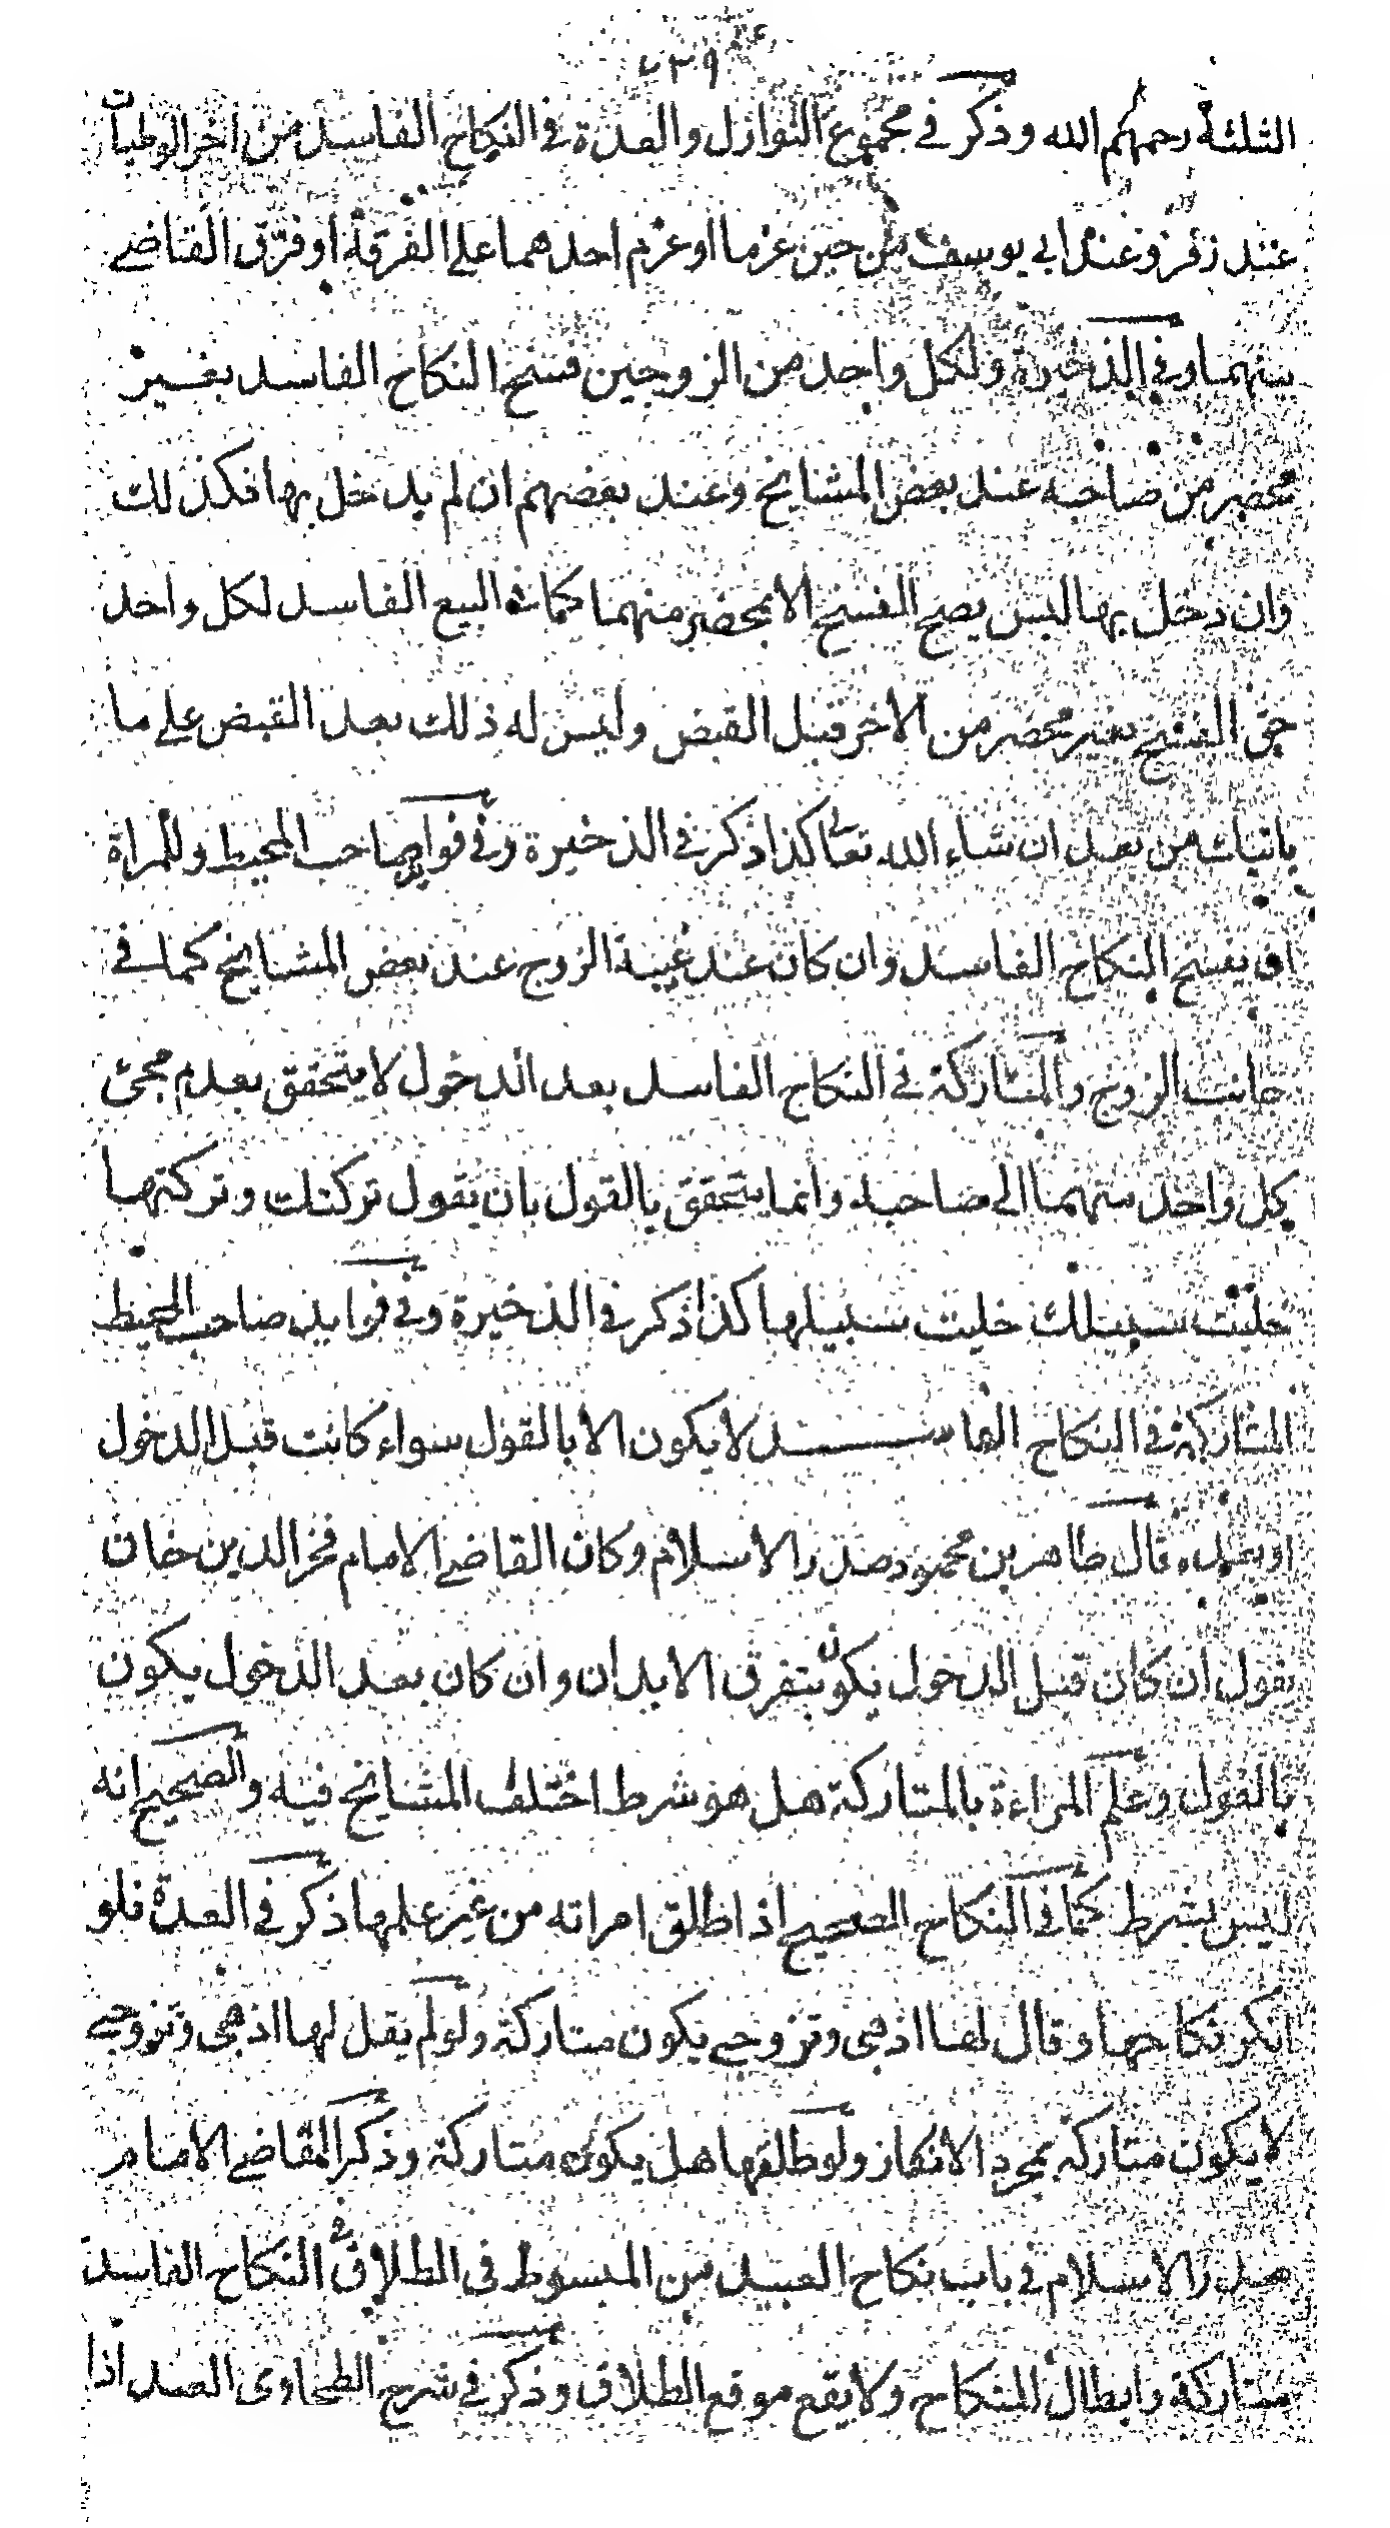 ٢٣٩
الثلثة رحمهم الله وذكر في مجموع النوازل والعدة في النكاح الفاسد من اخر الوطيات
عند زفر وعند ابي يوسف من حين عزما او عزم احدهما على الفرقة او فرق القاضي
بينهما وفي الذخيرة ولكل واحد من الزوجين فسخ النكاح الفاسد بغير
محضر من صاحبه عند بعض المشايخ وعند بعضهم ان لم يدخل بها فكذلك
وان دخل بها ليس يصح الفسخ الا بمحضر منهما كما في البيع الفاسد لكل واحد
حق الفسخ بغير محضر من الاخر قبل القبض وليس له ذلك بعد القبض على ما
ياتيك من بعد ان شاء الله تعا كذا ذكر في الذخيرة وفي فوايد صاحب المحيط وللمراة
ان يفسخ النكاح الفاسد وان كان عند غيبة الزوج عند بعض المشايخ كما في
جانب الزوج والمتاركة في النكاح الفاسد بعد الدخول لا يتحقق بعدم مجئ
كل واحد منهما الى صاحبه وانما يتحقق بالقول بان يقول تركتك وتركتها
خليت سبيلك خليت سبيلها كذا ذكر في الذخيرة وفي فوايد صاحب المحيط
المتاركة في النكاح الفاسد لا يكون الا بالقول سواء كانت قبل الدخول
او بعده قال طاهر بن محمود صدر الاسلام وكان القاضي الامام فخر الدين خان
يقول ان كان قبل الدخول يكون بتفرق الابدان وان كان بعد الدخول يكون
بالقول وعلم المراءة بالمتاركة هل هو شرط اختلف المشايخ فيه والصحيح انه
ليس بشرط كما في النكاح الصحيح اذا طلق امراته من غير علمها ذكر في العدة فلو
انكر نكاحها وقال لها اذهبي وتزوجي يكون متاركة ولو لم يقل لها اذهبي وتزوجي
لا يكون متاركة بمجرد الانكار ولو طلقها هل يكون متاركة وذكر القاضي الامام
صدر الاسلام في باب نكاح العبد من المبسوط في الطلاق في النكاح الفاسد
متاركة وابطال للنكاح ولا يقع موقع الطلاق وذكر في شرح الطحاوي العبد اذا